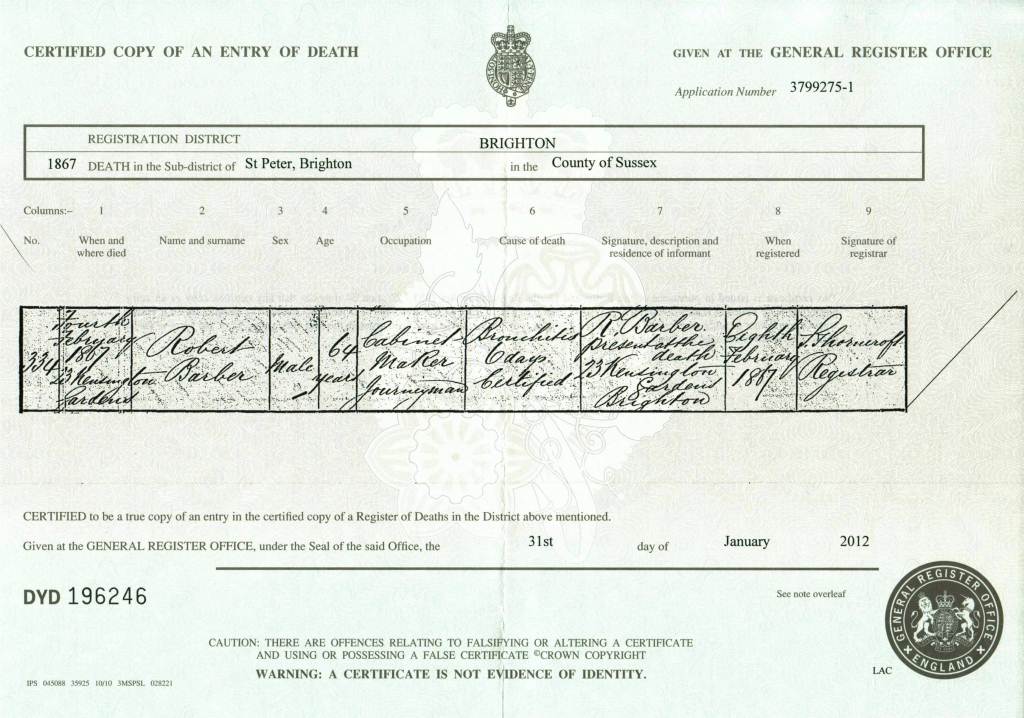 CERTIFIED COPY OF AN ENTRY OF DEATH
GIVEN AT THE GENERAL REGISTER OFFICE
Application Number 3799275-1
REGISTRATION DISTRICT BRIGHTON
1867 DEATH in the Sub-district of St Peter, Brighton in the County of Sussex
Columns:– 1 2 3 4 5 6 7 8 9
No. When and where died Name and surname Sex Age Occupation Cause of death Signature, description and residence of informant When registered Signature of registrar
334
Fourth
February
1867
23 Kensington
Gardens
Robert
Barber
Male
64
years
Cabinet
Maker
Journeyman
Bronchitis
6 days
Certified
R Barber
present at the
death
23 Kensington
Gardens
Brighton
Eighth
February
1867
Thorncroft
Registrar
CERTIFIED to be a true copy of an entry in the certified copy of a Register of Deaths in the District above mentioned.
Given at the GENERAL REGISTER OFFICE, under the Seal of the said Office, the 31st day of January 2012
DYD 196246
See note overleaf
CAUTION: THERE ARE OFFENCES RELATING TO FALSIFYING OR ALTERING A CERTIFICATE
AND USING OR POSSESSING A FALSE CERTIFICATE ©CROWN COPYRIGHT
WARNING: A CERTIFICATE IS NOT EVIDENCE OF IDENTITY.
GENERAL REGISTER OFFICE
ENGLAND
LAC
IPS 045088 35925 10/10 3MSPSL 028221